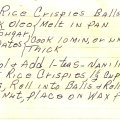 Rice Crispies Balls
Oleo Melt in Pan
Sugar
Dates) Cook 10 Min. or un
Thick
ol & Add 1-teas-Vanill
Rice Krispies 1/2 Cup
, Roll into Balls & Roll
Nut, Place on Wax P